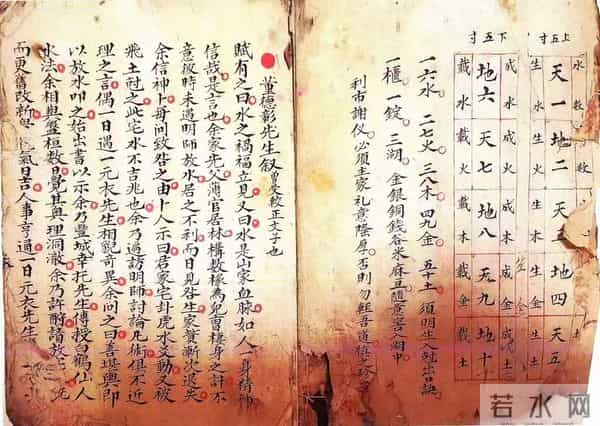 上五寸
下五寸
天一地二天三地四天五
生水生火生木生金生土
成水成火成木成金成土
地六天七地八天九地十
載水載火載木載金載土
一六水二七火三八木四九金五十土須明生入尅出訣
一櫃一錠三湖金銀銅錢各米麻豆隨意塞入湖中
利市謝仪必須主家礼意隆厚否則勿輕吾道慎之珍
董德彰先生叙曾受較正文子也
賦有之曰水之禍福立見又曰水是山家血脉如人一身精神
信哉是言也余家先父薄官居林構數椽為兒曹棲身之計不
意彼時未遇明師放水居之不利而日見咎生家資漸次退失
余信神卜每问致咎之由卜人示曰君家宅卦虎水交動又被
飛土尅之此宅水不吉兆也余乃過訪明師討論凡術俱不近
理之言偶一日遇一元衣先生相貌奇异余问之曰善堪輿即
以放水叩之始出書以示余乃豐城幸托先生傳授白鶴仙人
水法余相與盤桓數日覺其奥理洞澈余乃許酧諸放
而更舊改新氣日吉人事亨通一日元衣先生
若水网